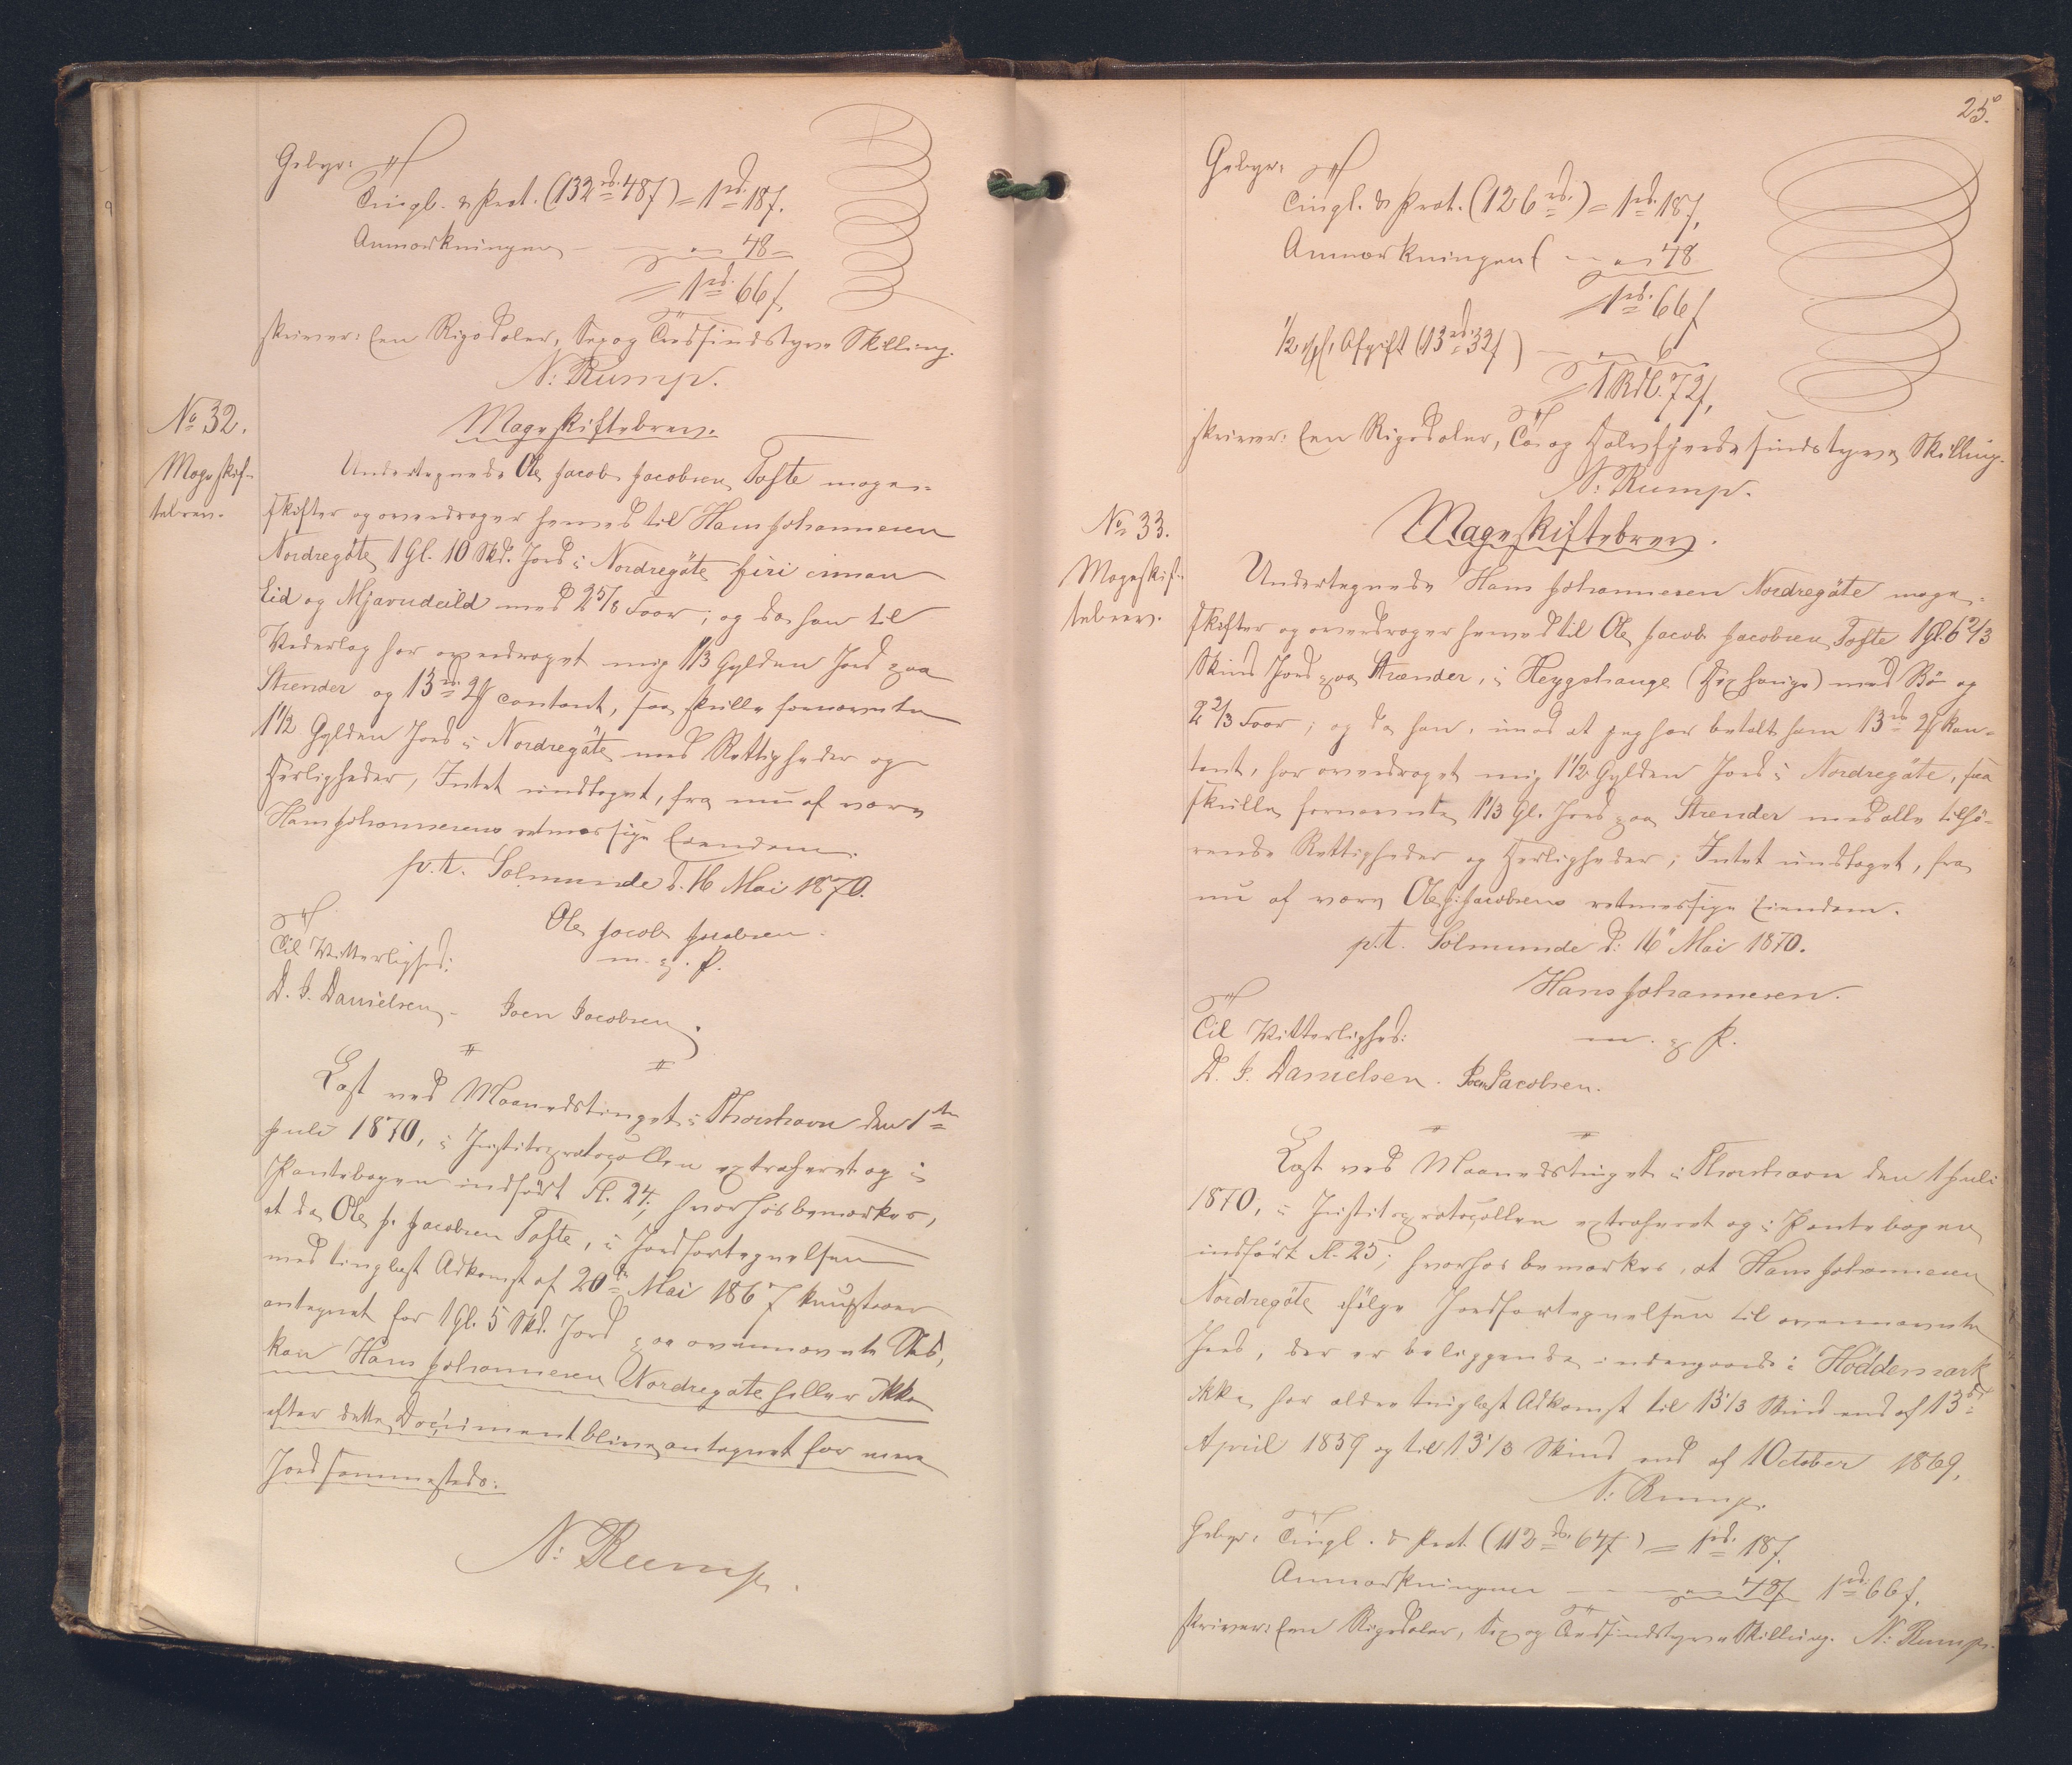 Gebyr:
Tingl. & Prot. (132 rd. 48 ſ) = 1 rd. 18 ſ.
Anmærkningen — " — 48 —
= 1 rd. 66 ſ.
skriver: Een Rigsdaler, Sex og Tredsindstyve Skilling.
N: Rump.
No 32.
Mageskif-
tebrev.
Mageskiftebrev.
Undertegnede Ole Jacob Jacobsen Tofte mage-
skifter og overdrager hermed til Hans Johannesen
Nordregöte 1 Gl. 10 Skd. Jord i Nordregöte firi innan
Eid og Mjavudeild med 2 5/8 Foor; og da han til
Vederlag har overdraget mig 1 1/3 Gylden Jord paa
Strender og 13 rd. 2 ſ contant, saa skulle fornævnte
1 1/2 Gylden Jord i Nordregöte med Rettigheder og
Herligheder, Intet undtaget, fra nu af være
Hans Johannesens retmæssige Eiendom.
p.t. Solmunde d. 16 Mai 1870.
Ole Jacob Jacobsen.
m. p. P.
Til Vitterlighed:
D. J. Danielsen. Joen Jacobsen.
Læst ved Maanedstinget i Thorshavn den 1ste
Juli 1870, i Justitsprotocollen extraheret og i
Pantebogen indført Fl. 24; hvorhos bemærkes,
at da Ole J. Jacobsen Tofte, i Jordfortegnelsen
med tinglæst Adkomst af 20de Mai 1867 kun staaer
antegnet for 1 Gl. 5 Skd. Jord paa ovennævnte Sted,
kan Hans Johannesen Nordregöte heller ikke
efter dette Document blive antegnet for mere
Jord sammesteds.
N: Rump.
25.
Gebyr:
Tingl. & Prot. (126 rd.) = 1 rd. 18 ſ.
Anmærkningen — " 48
1 rd. 66 ſ
1/2 pCt. Afgift (13 rd. 32 ſ) — " 6
= 1 Rdl. 72 ſ,
skriver: Een Rigsdaler, To og Halvfjerdsindstyve Skilling.
N: Rump.
No 33.
Mageskif-
tebrev.
Mageskiftebrev.
Undertegnede Hans Johannesen Nordregöte mage-
skifter og overdrager hermed til Ole Jacob Jacobsen Tofte 1 Gl. 6 2/3
Skind Jord paa Strænder, i Heygshauge (Høxhauge) med Bö og
2 2/3 Foor; og da han, imod at jeg har betalt ham 13 rd. 2 ſ kon-
tant, har overdraget mig 1 1/2 Gylden Jord i Nordregöte, saa
skulle fornævnte 1 1/3 Gl. Jord paa Strender med alle tilhö-
rende Rettigheder og Herligheder, Intet undtaget, fra
nu af være Ole J. Jacobsens retmæssige Eiendom.
p.t. Solmunde d: 16 Mai 1870.
Hans Johannesen.
m. p. P.
Til Vitterlighed:
D. J. Danielsen. Joen Jacobsen.
Læst ved Maanedstinget i Thorshavn den 1 Juli
1870, i Justitsprotocollen extraheret og i Pantebogen
indført Fl. 25; hvorhos bemærkes, at Hans Johannesen
Nordregöte ifölge Jordfortegnelsen til ovennævnte
Jord, der er beliggende indengaards i Hoddemark
ikke har ældre tinglæst Adkomst til 13 1/3 Skind end af 13de
April 1859 og til 13 1/3 Skind end af 1 October 1869.
N: Rump.
Gebyr: Tingl. & Prot. (112 rd. 64 ſ) = 1 rd. 18 ſ.
Anmærkningen — " 48 ſ 1 rd. 66 ſ.
skriver: Een Rigsdaler, Sex og Tredsindstyve Skilling. N: Rump.